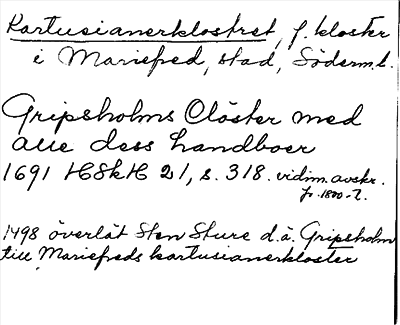 Kartusianerklostret, f. kloster
i Mariefred, stad, Söderm.l.
Gripsholms Clöster med
alle dess landboer
1691 HSkH 21, s. 318. vidim. avskr.
fr. 1800-t.
1498 överlät Sten Sture d.ä. Gripsholm
till Mariefreds kartusianerkloster